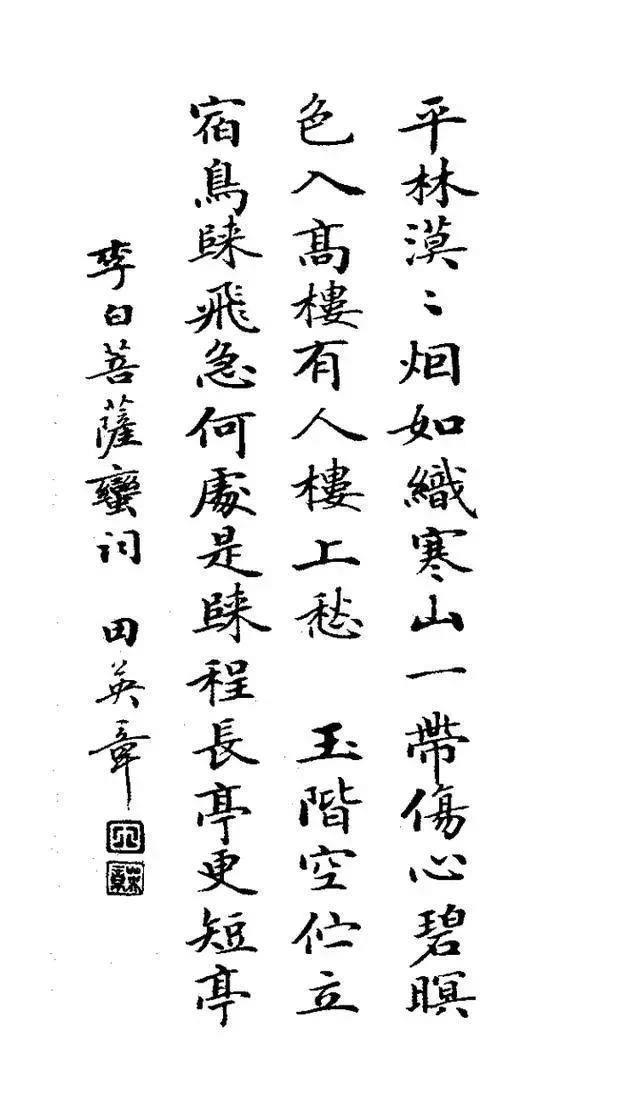 平林漠〻烟如織寒山一帶傷心碧暝
色入髙樓有人樓上愁　玉階空伫立
宿鳥歸飛急何處是歸程長亭更短亭
李白菩薩蠻詞　田英章